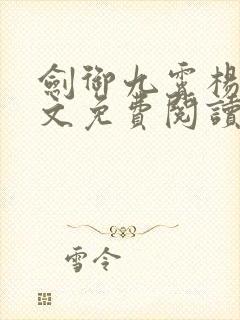 劍御九霄楊
文免費閱讀
雪令